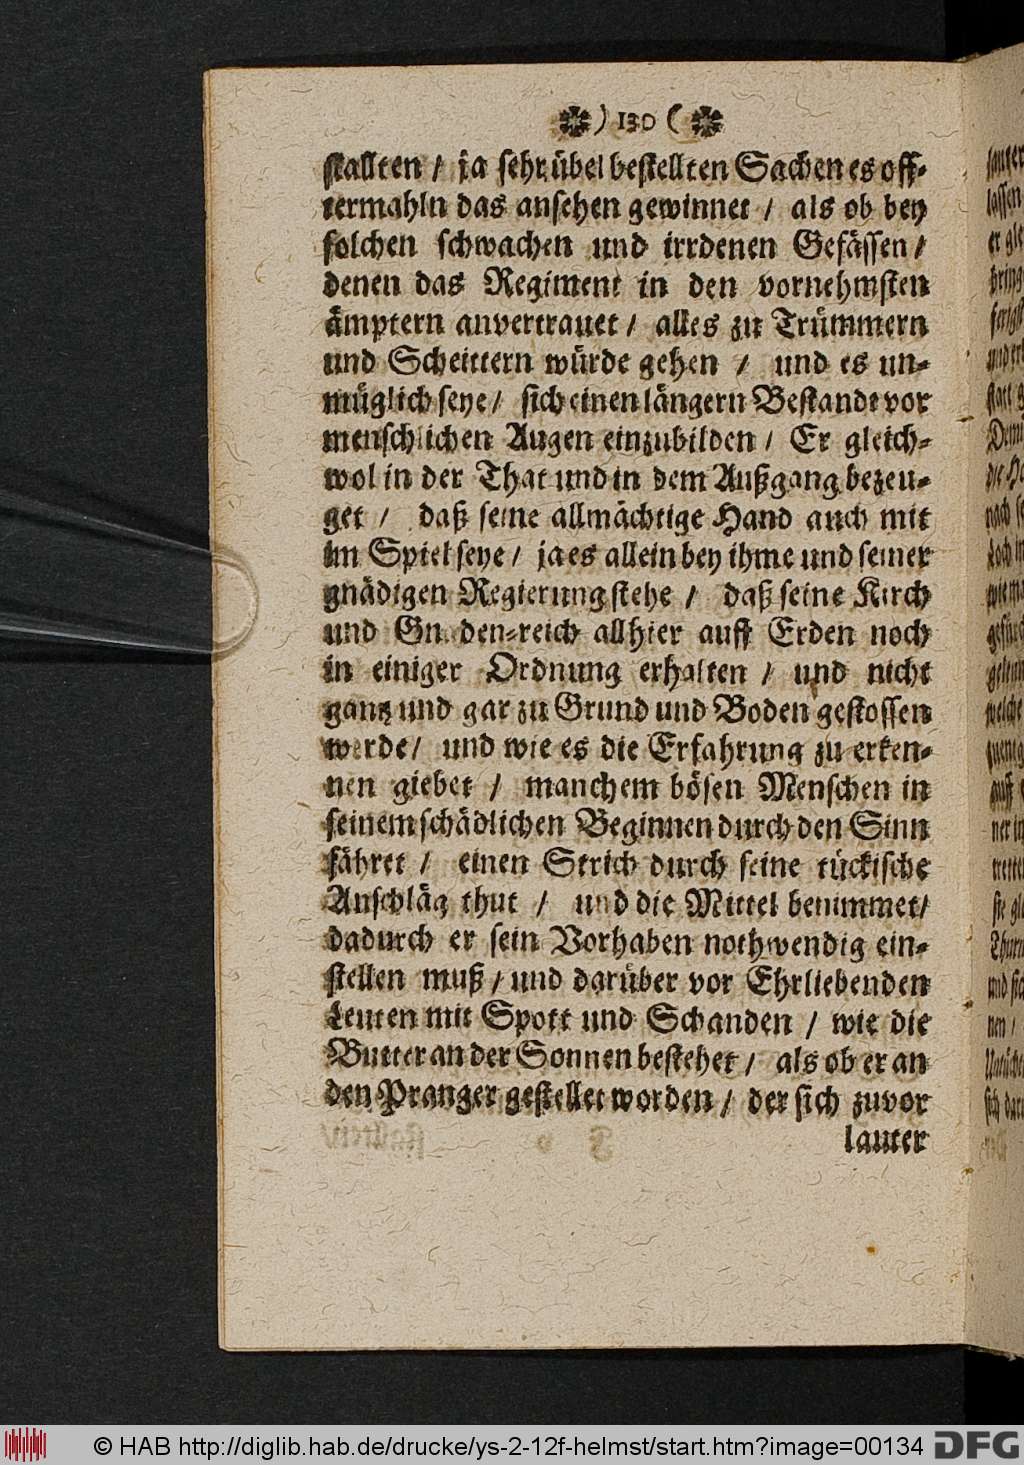 ❁) 130 (❁
stallten / ja sehr übel bestellten Sachen es off-
termahln das ansehen gewinnet / als ob bey
solchen schwachen und irrdenen Gefässen /
denen das Regiment in den vornehmsten
ämptern anvertrauet / alles zu Trümmern
und Scheittern würde gehen / und es un-
müglich seye / sich einen längern Bestande vor
menschlichen Augen einzubilden / Er gleich-
wol in der That und in dem Außgang bezeu-
get / daß seine allmächtige Hand auch mit
im Spiel seye / ja es allein bey ihme und seiner
gnädigen Regierung stehe / daß seine Kirch
und Gnaden-reich allhier auff Erden noch
in einiger Ordnung erhalten / und nicht
gantz und gar zu Grund und Boden gestossen
werde / und wie es die Erfahrung zu erken-
nen giebet / manchem bösen Menschen in
seinem schädlichen Beginnen durch den Sinn
fähret / einen Strich durch seine tückische
Anschläg thut / und die Mittel benimmet /
dadurch er sein Vorhaben nothwendig ein-
stellen muß / und darüber vor Ehrliebenden
Leuten mit Spott und Schanden / wie die
Butter an der Sonnen bestehet / als ob er an
den Pranger gestellet worden / der sich zuvor
lauter
© HAB http://diglib.hab.de/drucke/ys-2-12f-helmst/start.htm?image=00134
DFG